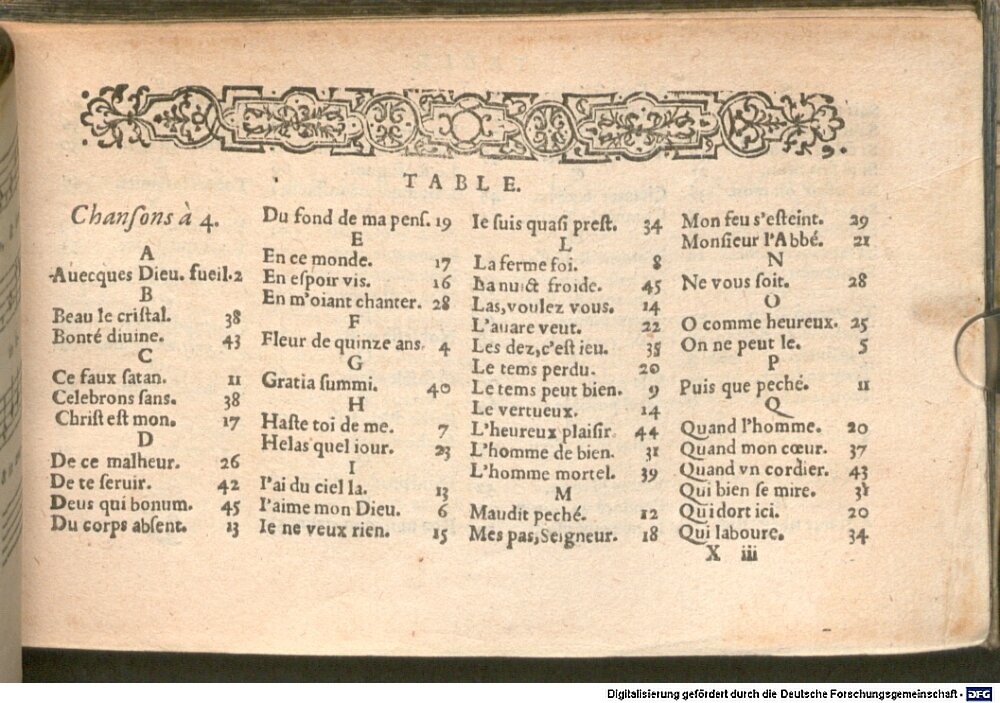 TABLE.
Chanſons à 4.
A
Auecques Dieu. fueil. 2
B
Beau le criſtal. 38
Bonté diuine. 43
C
Ce faux ſatan. 11
Celebrons ſans. 38
Chriſt eſt mon. 17
D
De ce malheur. 26
De te ſeruir. 42
Deus qui bonum. 45
Du corps abſent. 13
Du fond de ma penſ. 19
E
En ce monde. 17
En eſpoir vis. 16
En m'oiant chanter. 28
F
Fleur de quinze ans. 4
G
Gratia ſummi. 40
H
Haſte toi de me. 7
Helas quel iour. 23
I
I'ai du ciel la. 13
I'aime mon Dieu. 6
Ie ne veux rien. 15
Ie ſuis quaſi preſt. 34
L
La ferme foi. 8
La nuict froide. 45
Las, voulez vous. 14
L'auare veut. 22
Les dez, c'eſt ieu. 35
Le tems perdu. 20
Le tems peut bien. 9
Le vertueux. 14
L'heureux plaiſir. 44
L'homme de bien. 31
L'homme mortel. 39
M
Maudit peché. 12
Mes pas, Seigneur. 18
Mon feu s'eſteint. 29
Monſieur l'Abbé. 21
N
Ne vous ſoit. 28
O
O comme heureux. 25
On ne peut le. 5
P
Puis que peché. 11
Q
Quand l'homme. 20
Quand mon cœur. 37
Quand vn cordier. 43
Qui bien ſe mire. 31
Qui dort ici. 20
Qui laboure. 34
X iii
Digitalisierung gefördert durch die Deutsche Forschungsgemeinschaft - DFG